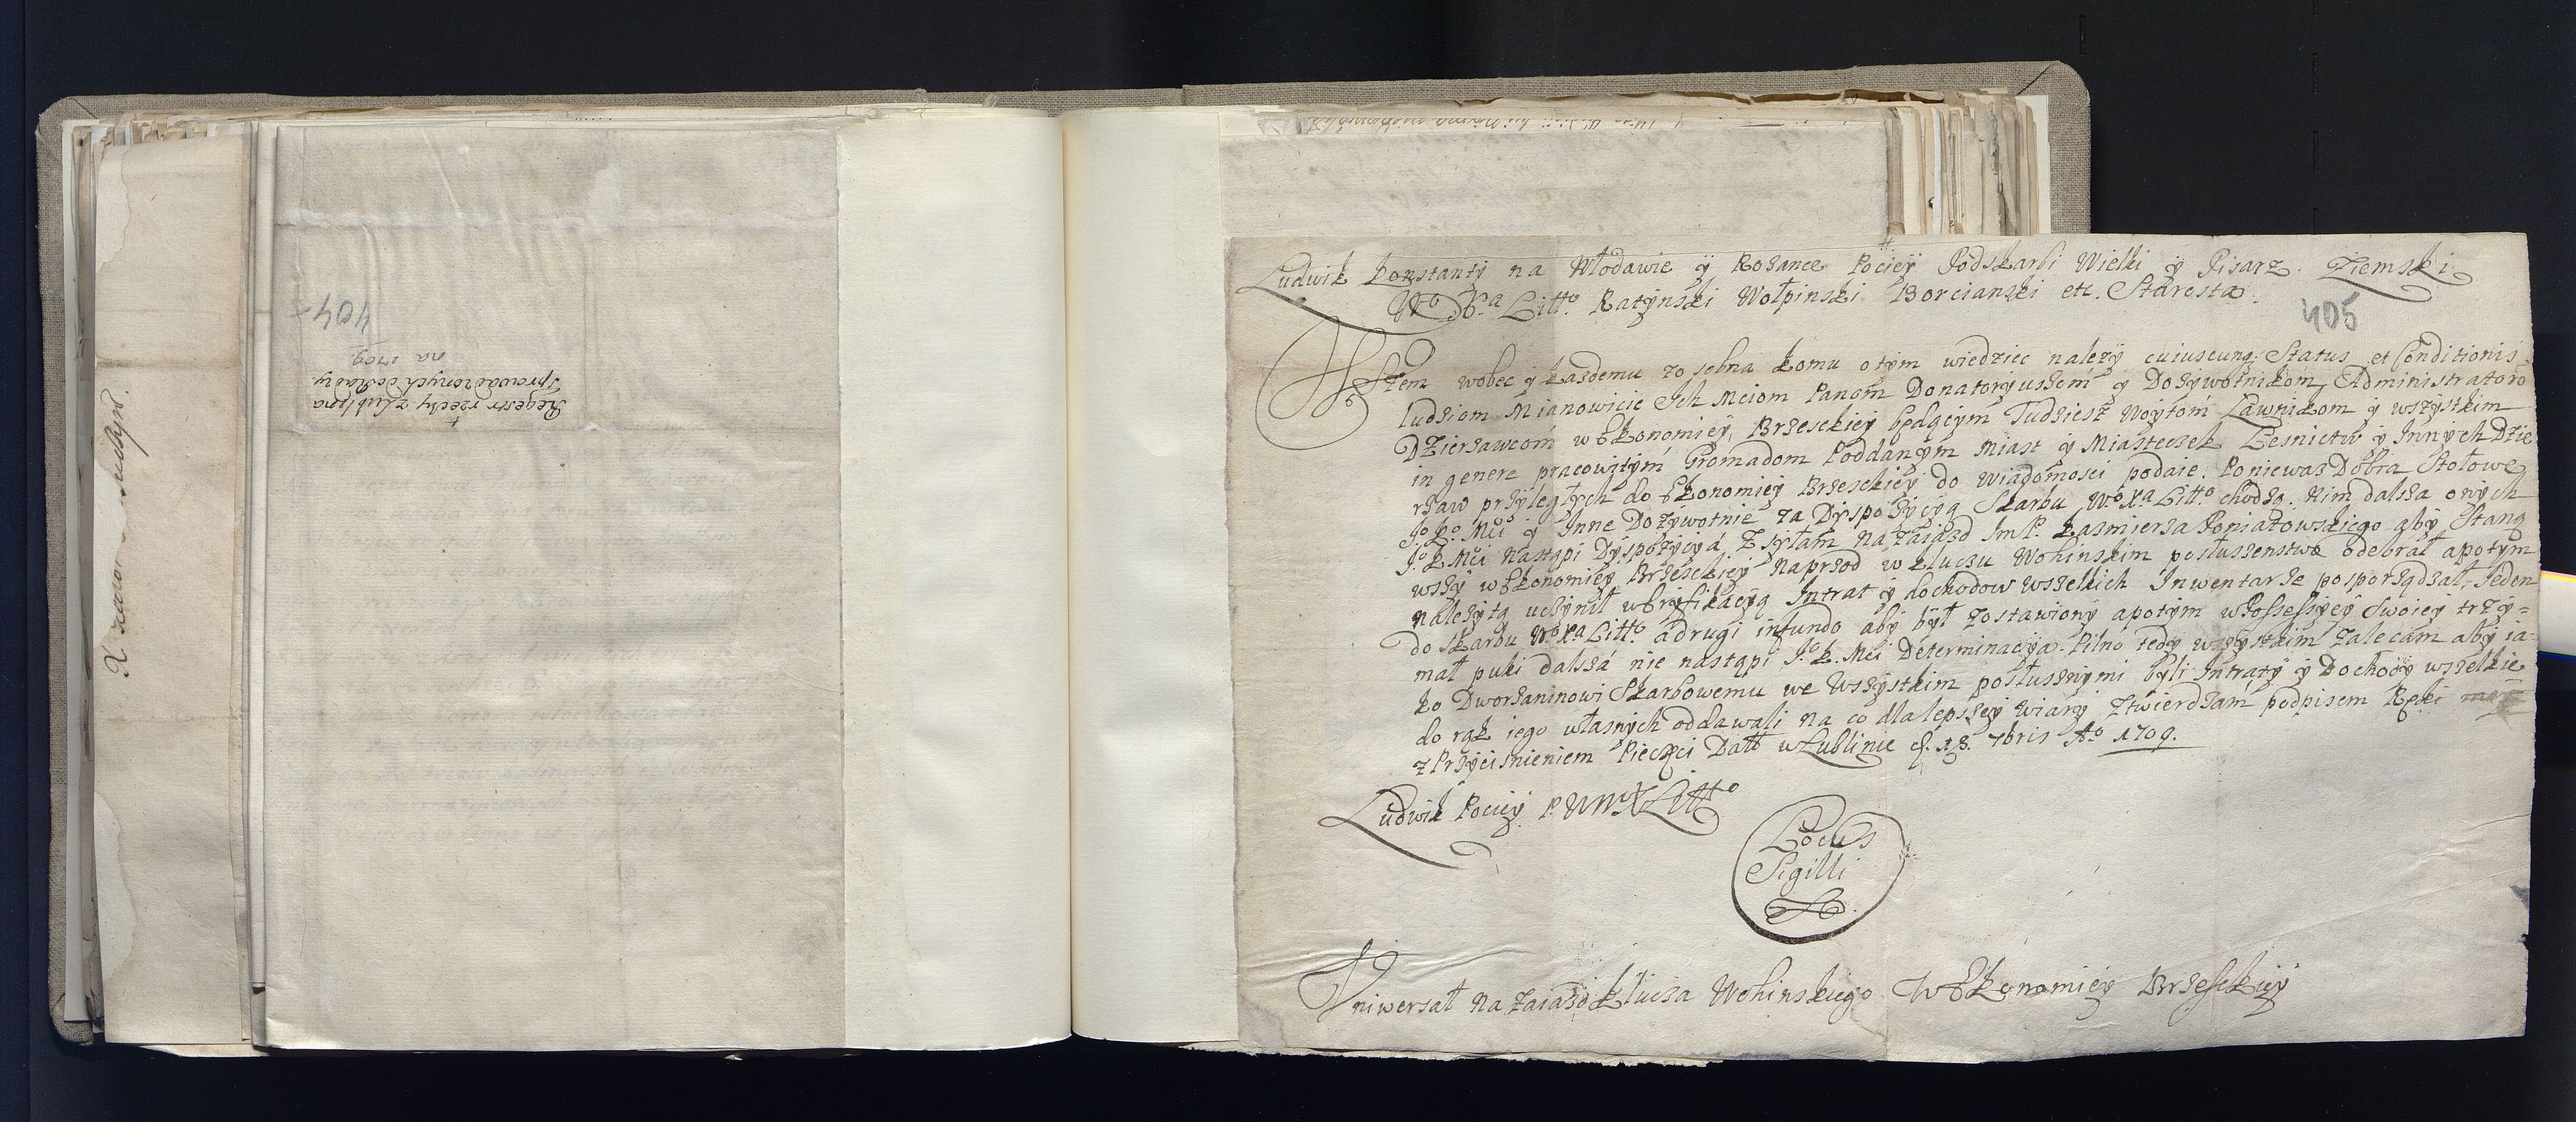 X
404
Regestr rzeczy z Lublina
sprowadzonych do Rady
na 1709.
Ludwik Konstanty na Włodawie ÿ Rożance Pociey Podskarbi Wielki ÿ Pisarz Ziemski
Wo Xa Litto Ratÿnski Wołpinski Borcianski etc. Starosta.
405
Wszem wobec ÿ każdemu zosebna komu o tÿm wiedziec należÿ cuiuscunq; Status et Conditionis
ludziom Mianowicie Ich Mciom Panom Donatoryuszem ÿ Dożÿwotnikom, Administratoro
Dzierżawcom w Ekonomieÿ Brzeskieÿ będącÿm Tudziesz Woÿtom Ławnikom ÿ wszÿstkim
in genere pracowitÿm Gromadom Poddanÿm Miast ÿ Miasteczek Lesnictw ÿ Innÿch Dzie
rżaw przÿległÿch do Ekonomieÿ Brzeskieÿ do wiadomosci podaie. Poniewaz Dobra Stołowe
Jo Ko Mci ÿ Inne Dożÿwotnie za Dÿspozÿcÿą Skarbu Wo Xa Litto chodzą. Nim dalsza onÿch
Jo K Mci nastąpi Dÿspozÿcÿa Zsÿłam na zaiazd Im P. Kazmierza Poniatowskiego abÿ staną
wszÿ w Ekonomieÿ Brzeskieÿ naprzod w kluczu Wohinskim posłuszenstwo odebrał a potÿm
należÿtą uczÿnił werÿfikacÿą Intrat ÿ dochodow wszelkich Inwentarze posporządzał, Jeden
do Skarbu Wo Xa Litto a drugi in fundo abÿ bÿł zostawionÿ a potÿm w Possessÿeÿ swoieÿ trzÿ=
mał puki dalsza nie nastąpi Jo K. Mci Determinacÿa. Pilno tedÿ wszÿstkim zalecam abÿ ia=
ko Dworzaninowi Skarbowemu we wszÿstkim posłusznÿmi bÿli Intratÿ ÿ Dochodÿ wszelkie
do rąk iego własnÿch oddawali na co dla lepszeÿ wiarÿ ztwierdzam podpisem Ręki meÿ
z Przÿcisnieniem Pieczęci Datt w Lublinie d. 18. 7bris Ao 1709.
Ludwik Pociey P. W W X Litto
Locus
Sigilli
Uniwersał na zaiazd klucza Wohinskiego W Ekonomieÿ Brzeskieÿ